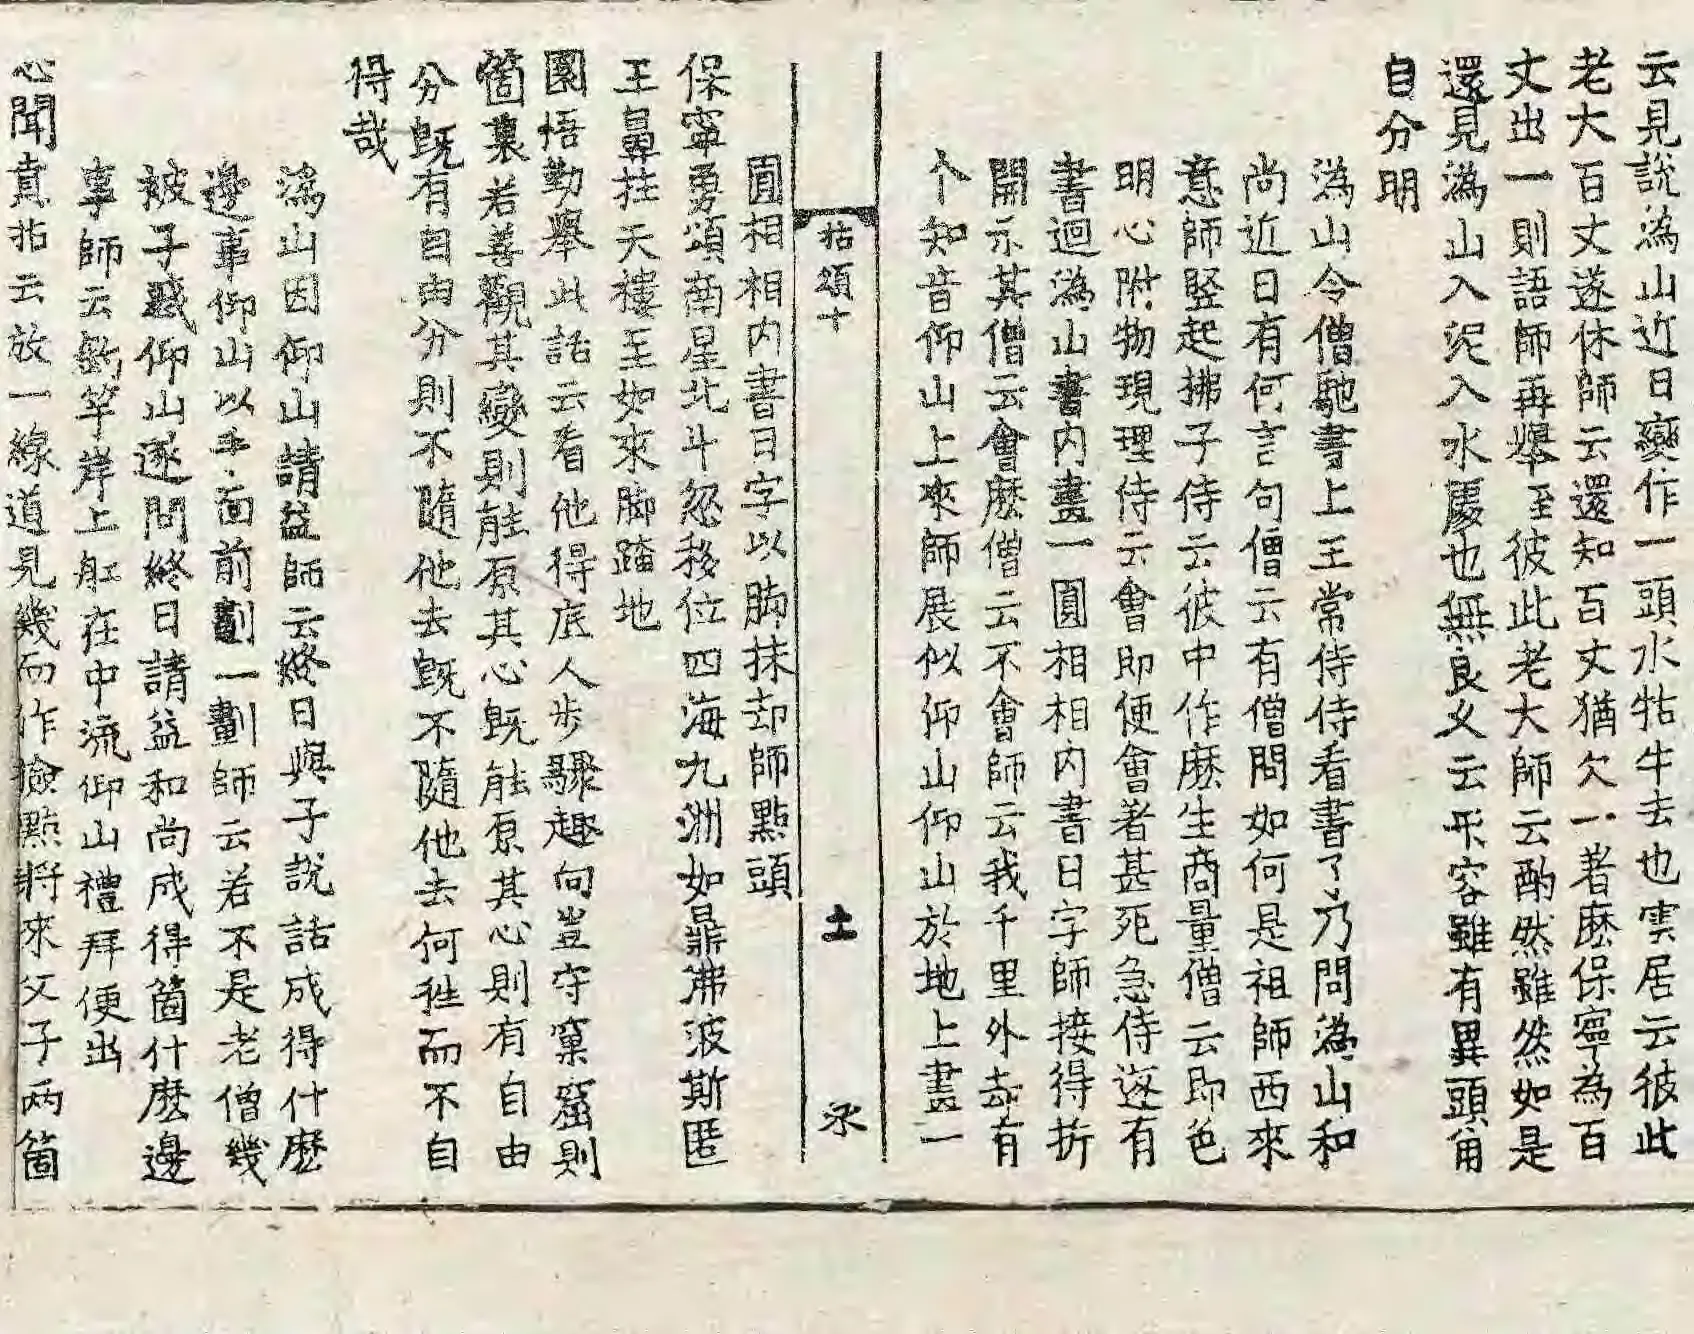 云見說溈山近日變作一頭水牯牛去也雲居云彼此
老大百丈遂休師云還知百丈猶欠一著麽保寧為百
丈出一則語師再舉至彼此老大師云酌然雖然如是
還見溈山入泥入水處也無良乆云不容雖有異頭角
自分明
溈山令僧馳書上王常侍侍看書了乃問溈山和
尚近日有何言句僧云有僧問如何是祖師西來
意師竪起拂子侍云彼中作麽生商量僧云即色
明心附物現理侍云會即便會著甚死急侍遂有
書迴溈山書內畫一圓相相內書日字師接得折
開示其僧云會麽僧云不會師云我千里外却有
个知音仰山上來師展似仰山仰山於地上畫一
拈頌十
土
永
圓相相內書日字以脚抹却師點頭
保寧勇頌南星北斗忽移位四海九洲如鼎沸波斯匿
王鼻拄天樓至如來脚踏地
圜悟勤舉此話云看他得底人步驟趣向豈守窠窟則
箇裏若善觀其變則能原其心旣能原其心則有自由
分旣有自由分則不隨他去旣不隨他去何徃而不自
得哉
溈山因仰山請益師云終日與子說話成得什麽
邊事仰山以手面前劃一劃師云若不是老僧幾
被子惑仰山逐問終日請益和尚成得箇什麽邊
事師云釣竿岸上舡在中流仰山禮拜便出
心聞賁拈云放一線道見幾而作撿點將來父子两箇